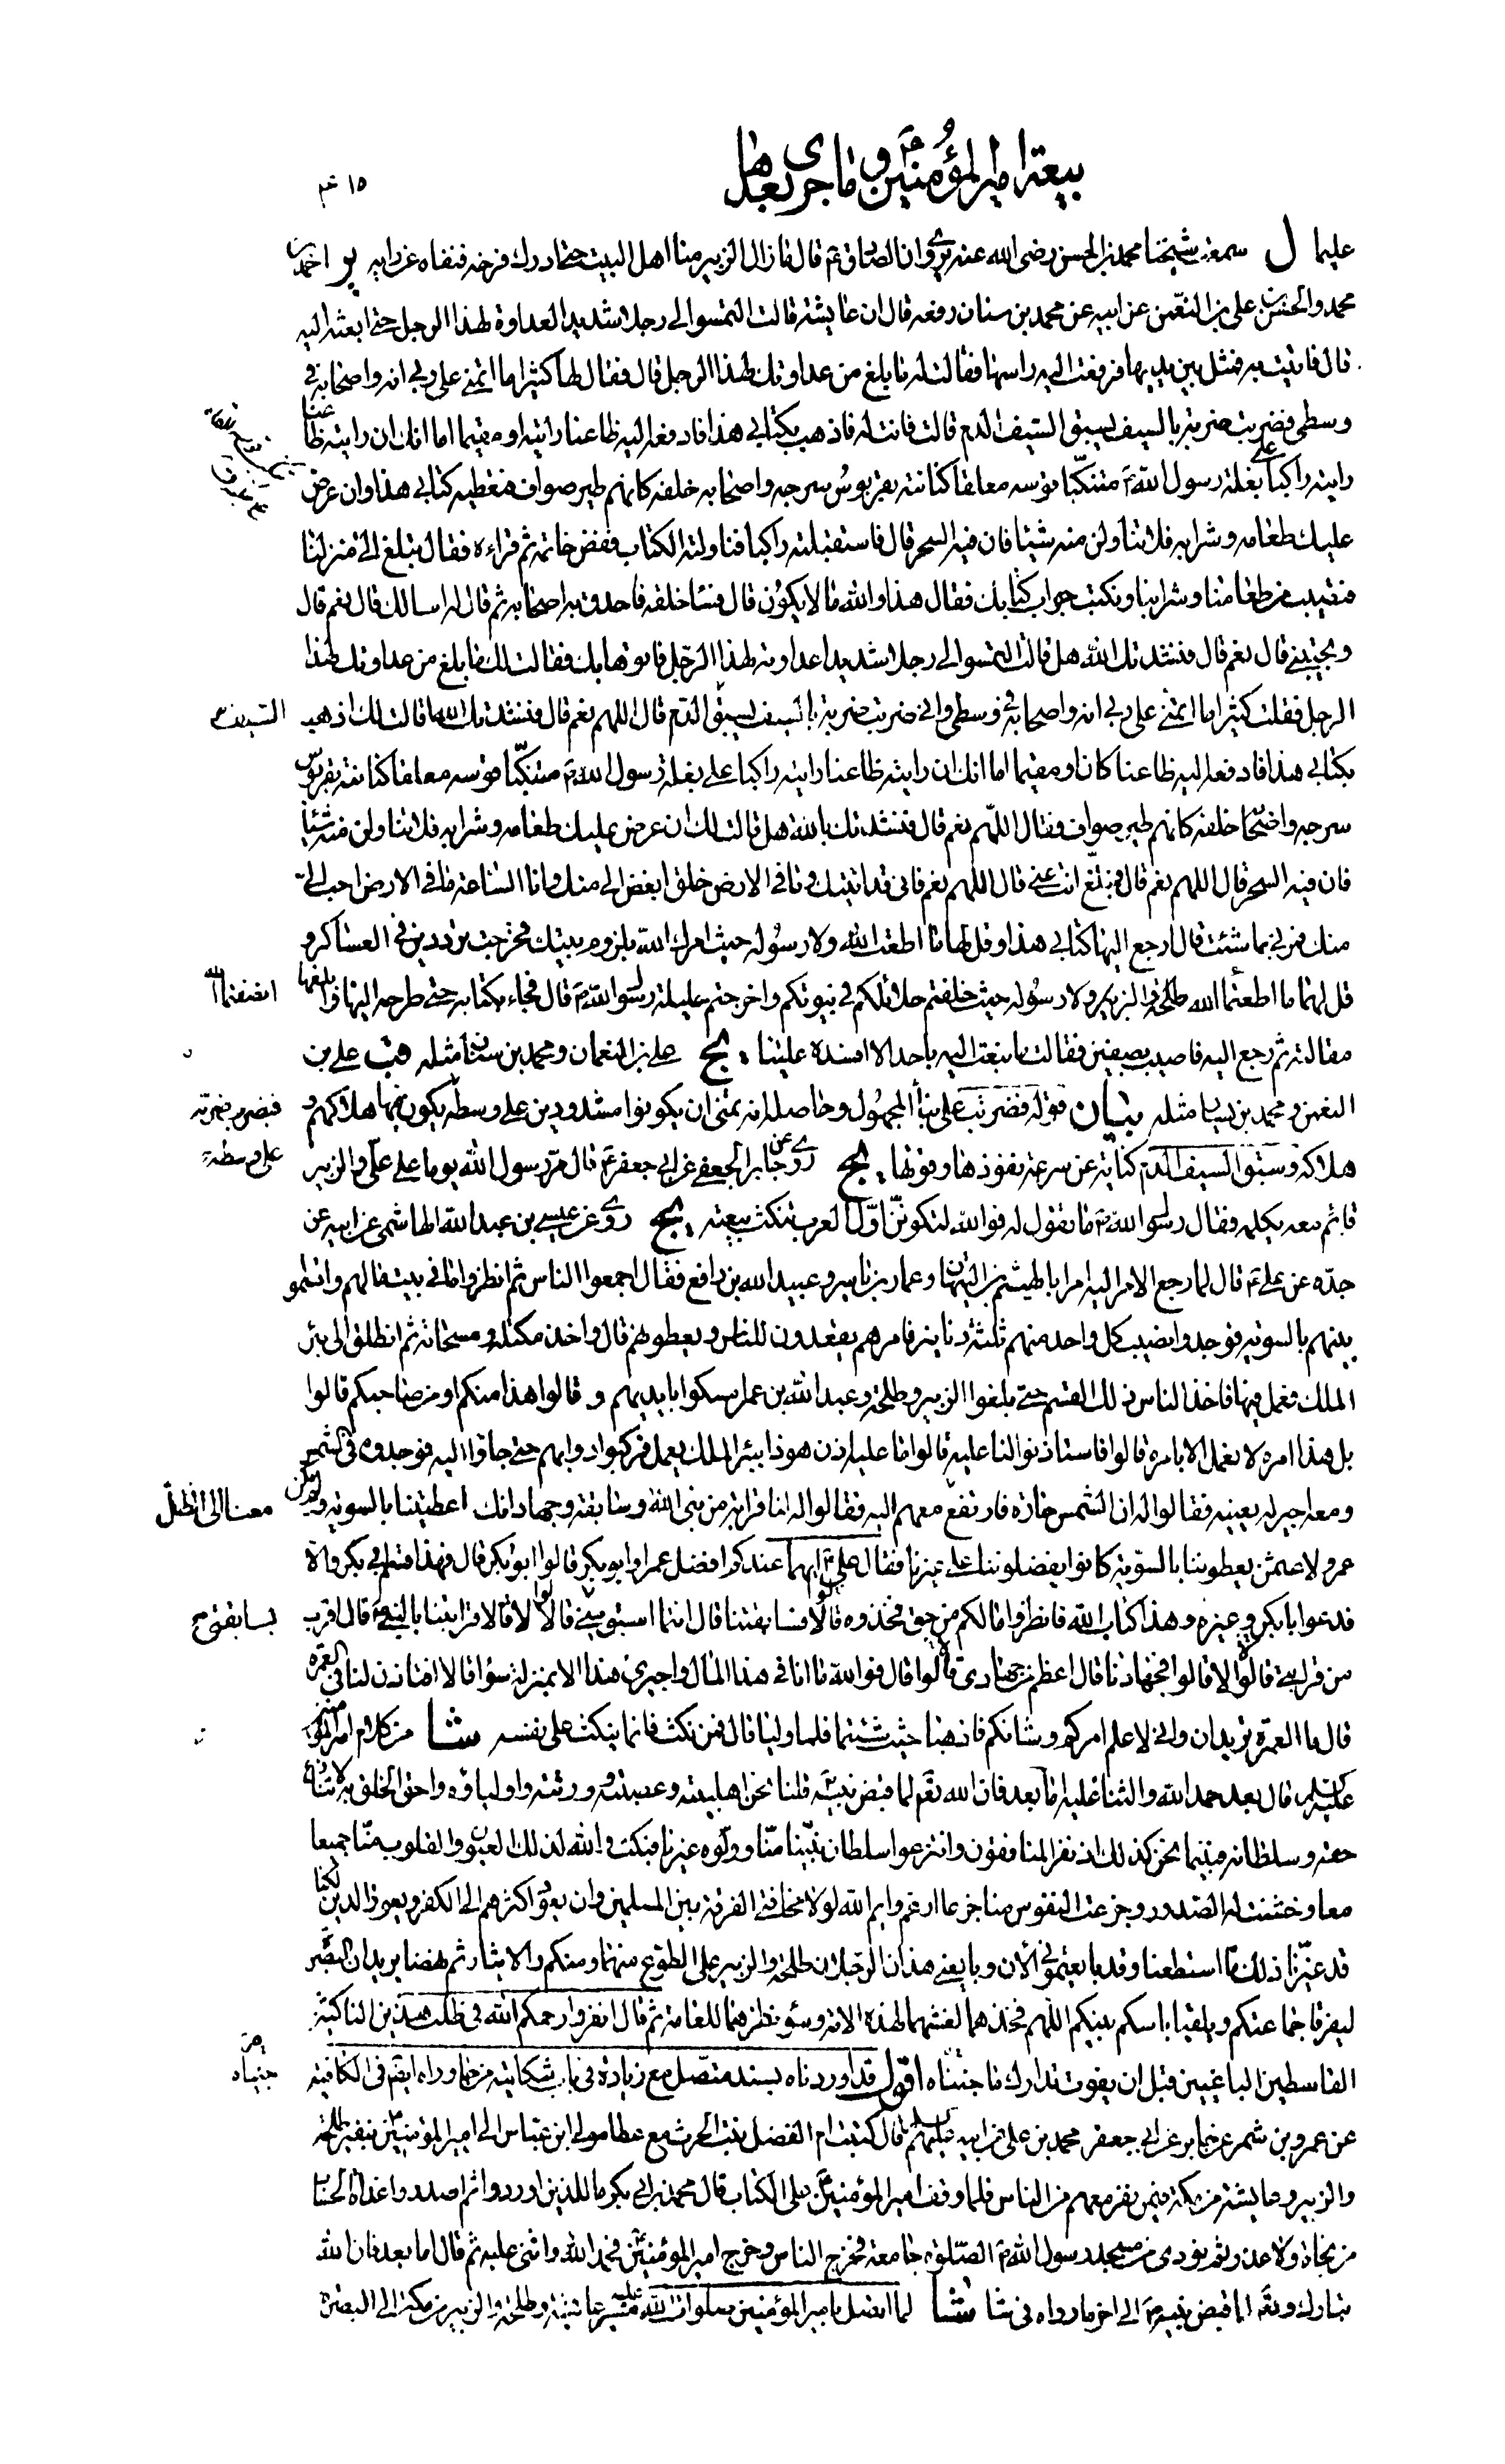 بيعة امير المؤمنين ع وما جرى بعدها
١٥ ع م
عليها ل سمعت شيخنا محمد بن الحسن رضي الله عنه يروي ان الصادق ع قال ما زال الزبير منا اهل البيت حتى ادرك فرخه فنفاه عن رايه ير احمد بن
محمد والحسن بن علي بن النعمن عن ابيه عن محمد بن سنان رفعه قال ان عايشة قالت التمسوا لي رجلا شديد العداوة لهذا الرجل حتى ابعثه اليه
قال فاتيت به فمثل بين يديها فرفعت اليه راسها فقالت له ما بلغ من عداوتك لهذا الرجل قال فقال لها كثيرا ما اتمنى على ربي انه واصحابه في
وسطي فضربت ضربة بالسيف يسبق السيف الدم قالت فانت له فاذهب بكتابي هذا فادفعه اليه ظاعنا رايته او مقيما اما انك ان رايته ظاعنا
رايته راكبا على بغلة رسول الله ص متنكبا قوسه معلقا كنانته بقربوس سرجه واصحابه خلفه كانهم طير صواف فتعطيه كتابي هذا وان عرض
عليك طعامه وشرابه فلا تناولن منه شيئا فان فيه السحر قال فاستقبلته راكبا فناولته الكتاب ففض خاتمه ثم قراءه فقال تبلغ الى منزلنا
فتصيب من طعامنا وشرابنا ونكتب جواب كتابك فقال هذا والله ما لا يكون قال فسا خلفه فاحدق به اصحابه ثم قال له اسالك قال نعم قال
وتجيبني قال نعم قال فنشدتك الله هل قالت التمسوا لي رجلا شديدا عداوته لهذا الرجل فاتوها بك فقالت لك ما بلغ من عداوتك لهذا
الرجل فقلت كثيرا ما اتمنى على ربي انه واصحابه في وسطي واني ضربت ضربة بالسيف يسبق الدم قال اللهم نعم قال فنشدتك الله اقالت لك اذهب
السيف
بكتابي هذا فادفعه اليه ظاعنا كان او مقيما اما انك ان رايته ظاعنا رايته راكبا على بغلة رسول الله ص متنكبا قوسه معلقا كنانته بقربوس
سرجه واصحابه خلفه كانهم طير صواف فقال اللهم نعم قال فنشدتك بالله هل قالت لك ان عرض عليك طعامه وشرابه فلا تناولن منه شيئا
فان فيه السحر قال اللهم نعم قال فمبلغ انت عني قال اللهم نعم فاني قد اتيتك وما في الارض خلق ابغض الي منك وانا الساعة ما في الارض احب الي
منك فمرني بما شئت قال ارجع اليها كتابي هذا وقل لها ما اطعت الله ولا رسوله حيث امرك الله بلزوم بيتك فخرجت ترددين في العساكر و
قل لهما ما اطعتما الله طلحة والزبير ولا رسوله حيث خلفتم حلائلكم في بيوتكم واخرجتم حليلة رسول الله ص قال فجاء بكتابه حتى طرحه اليها وابلغها
انصفتما الله
مقالته ثم رجع اليه فاصيب بصفين فقالت ما نبعث اليه باحد الا افسده علينا . يج علي بن النعمان ومحمد بن سنان مثله قب علي بن
النعمن ومحمد بن يسار مثله بيان قوله فضربت على بناء المجهول وحاصله انه تمنى ان يكونوا مشدودين على وسطه يكون فيها هلاكهم و
فيضرب ضربة
على وسطه
هلاكه وسبق السيف الدم كناية عن سرعة نفوذها وقوتها . يج روي عن جابر الجعفي عن ابي جعفر ع قال مر رسول الله يوما على علي والزبير
قائم معه يكلمه فقال رسول الله ص ما تقول له فوالله لتكونن اول العرب تنكث بيعته . يج روي عن عيسى بن عبد الله الهاشمي عن ابيه عن
جده عن علي ع قال لما رجع الامر اليه امر ابا الهيثم بن التيهان وعمار بن ياسر وعبيد الله بن رافع فقال اجمعوا الناس ثم انظروا ما في بيت مالهم واقسموا
بينهم بالسوية فوجدوا نصيب كل واحد منهم ثلثة دنانير فامرهم يقعدون للناس ويعطوهم قال واخذ مكتله ومسحاته ثم انطلق الى بئر
الملك فعمل فيها فاخذ الناس ذلك القسم حتى بلغوا الزبير وطلحة وعبد الله بن عمر امسكوا بايديهم و قالوا هذا منكم او من صاحبكم قالوا
بل هذا امره لا نعمل الا بامره قالوا فاستاذنوا لنا عليه قالوا ما عليه اذن هو ذا ببئر الملك يعمل فركبوا دوابهم حتى جاؤا اليه فوجدوه في الشمس
ومعه اجير له يعينه فقالوا له ان الشمس حارة فارتفع معهم اليه فقالوا له انا قرابة من نبي الله وسابقة وجهاد انك اعطيتنا بالسوية ولم يكن
معنا الى الظل
عمر ولا عثمن يعطوننا بالسوية كانوا يفضلوننا على غيرنا فقال علي ع ايهما عندكم افضل عمر او ابو بكر قالوا ابو بكر قال فهذا قسم ابي بكر والا
فدعوا ابا بكر وغيره وهذا كتاب الله فانظروا ما لكم من حق فخذوه قالا فسابقتنا قال انتما اسبق مني قالوا لا قالا قرابتنا بالنبي ص قال اقرب
بسابقتي
من قرابتي قالوا لا قالوا فجهادنا قال اعظم من جهادي قالوا لا قال فوالله ما انا في هذا المال واجيري هذا الا بمنزلة سؤا قالا افتاذن لنا في العمرة
قال ما العمرة تريدان واني لاعلم امركم وشانكم فاذهبا حيث شئتما فلما وليا قال فمن نكث فانما ينكث على نفسه شا من كلام امير المؤمنين
عليه السلام قال بعد حمد الله والثناء عليه اما بعد فان الله تعالى لما قبض نبيه ص قلنا نحن اهل بيته وعصبته وورثته واولياؤه واحق الخلق به لا ننازع
حقه وسلطانه فبينما نحن كذلك اذ نفر المنافقون وانتزعوا سلطان نبينا منا وولوه غيرنا فبكت والله لذلك العيون والقلوب منا جميعا
معا وخشنت له الصدور وجزعت النفوس منا جزعا ارغم وايم الله لولا مخافتي الفرقة بين المسلمين وان يعود اكثرهم الى الكفر ويعور الدين لكنا
قد غيرنا ذلك ما استطعنا وقد بايعتموني الان وبايعني هذان الرجلان طلحة والزبير على الطوع منهما ومنكم والايثار ثم نهضا يريدان البصرة
ليفرقا جماعتكم ويلقيا باسكم بينكم اللهم فخذهما لغشهما لهذه الامة وسوء نظرهما للعامة ثم قال انفروا رحمكم الله في طلب هذين الناكثين
القاسطين الباغيين قبل ان يفوت تدارك ما جنياه اقول قد اوردناه بسند متصل مع زيادة في باب شكايته ع ورواه ايضا في الكافية
جنياه
عن عمرو بن شمر عن جابر عن ابي جعفر محمد بن علي عن ابيه عليهم السلام قال كتبت ام الفضل بنت الحرث مع عطا مولى ابن عباس الى امير المؤمنين بنفير طلحة
والزبير وعايشة من مكة فيمن نفر معهم من الناس فلما وقف امير المؤمنين على الكتاب قال محمد بن ابي بكر ما للذين اوردوا ثم اصدروا غداة الحساب
من نجاة ولا عذر ثم نودي من مسجد رسول الله ص الصلوة جامعة فخرج الناس وخرج امير المؤمنين فحمد الله واثنى عليه ثم قال اما بعد فان الله
تبارك وتعالى لما قبض نبيه ص الى اخر ما رواه في شا شا لما اتصل بامير المؤمنين صلوات الله عليه مسير عايشة وطلحة والزبير من مكة الى البصرة